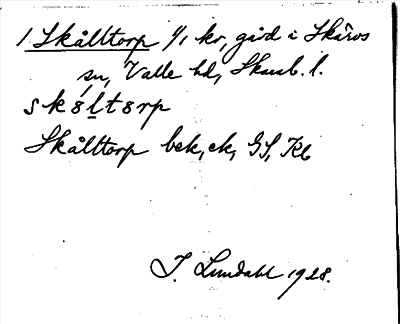 1 Skålltorp 1/1 kr, gård i Skärvs
sn, Valle hd, Skarab. l.
skåltɷrp
Skålltorp bek, ek, GS, Kb
I. Lundahl 1928.